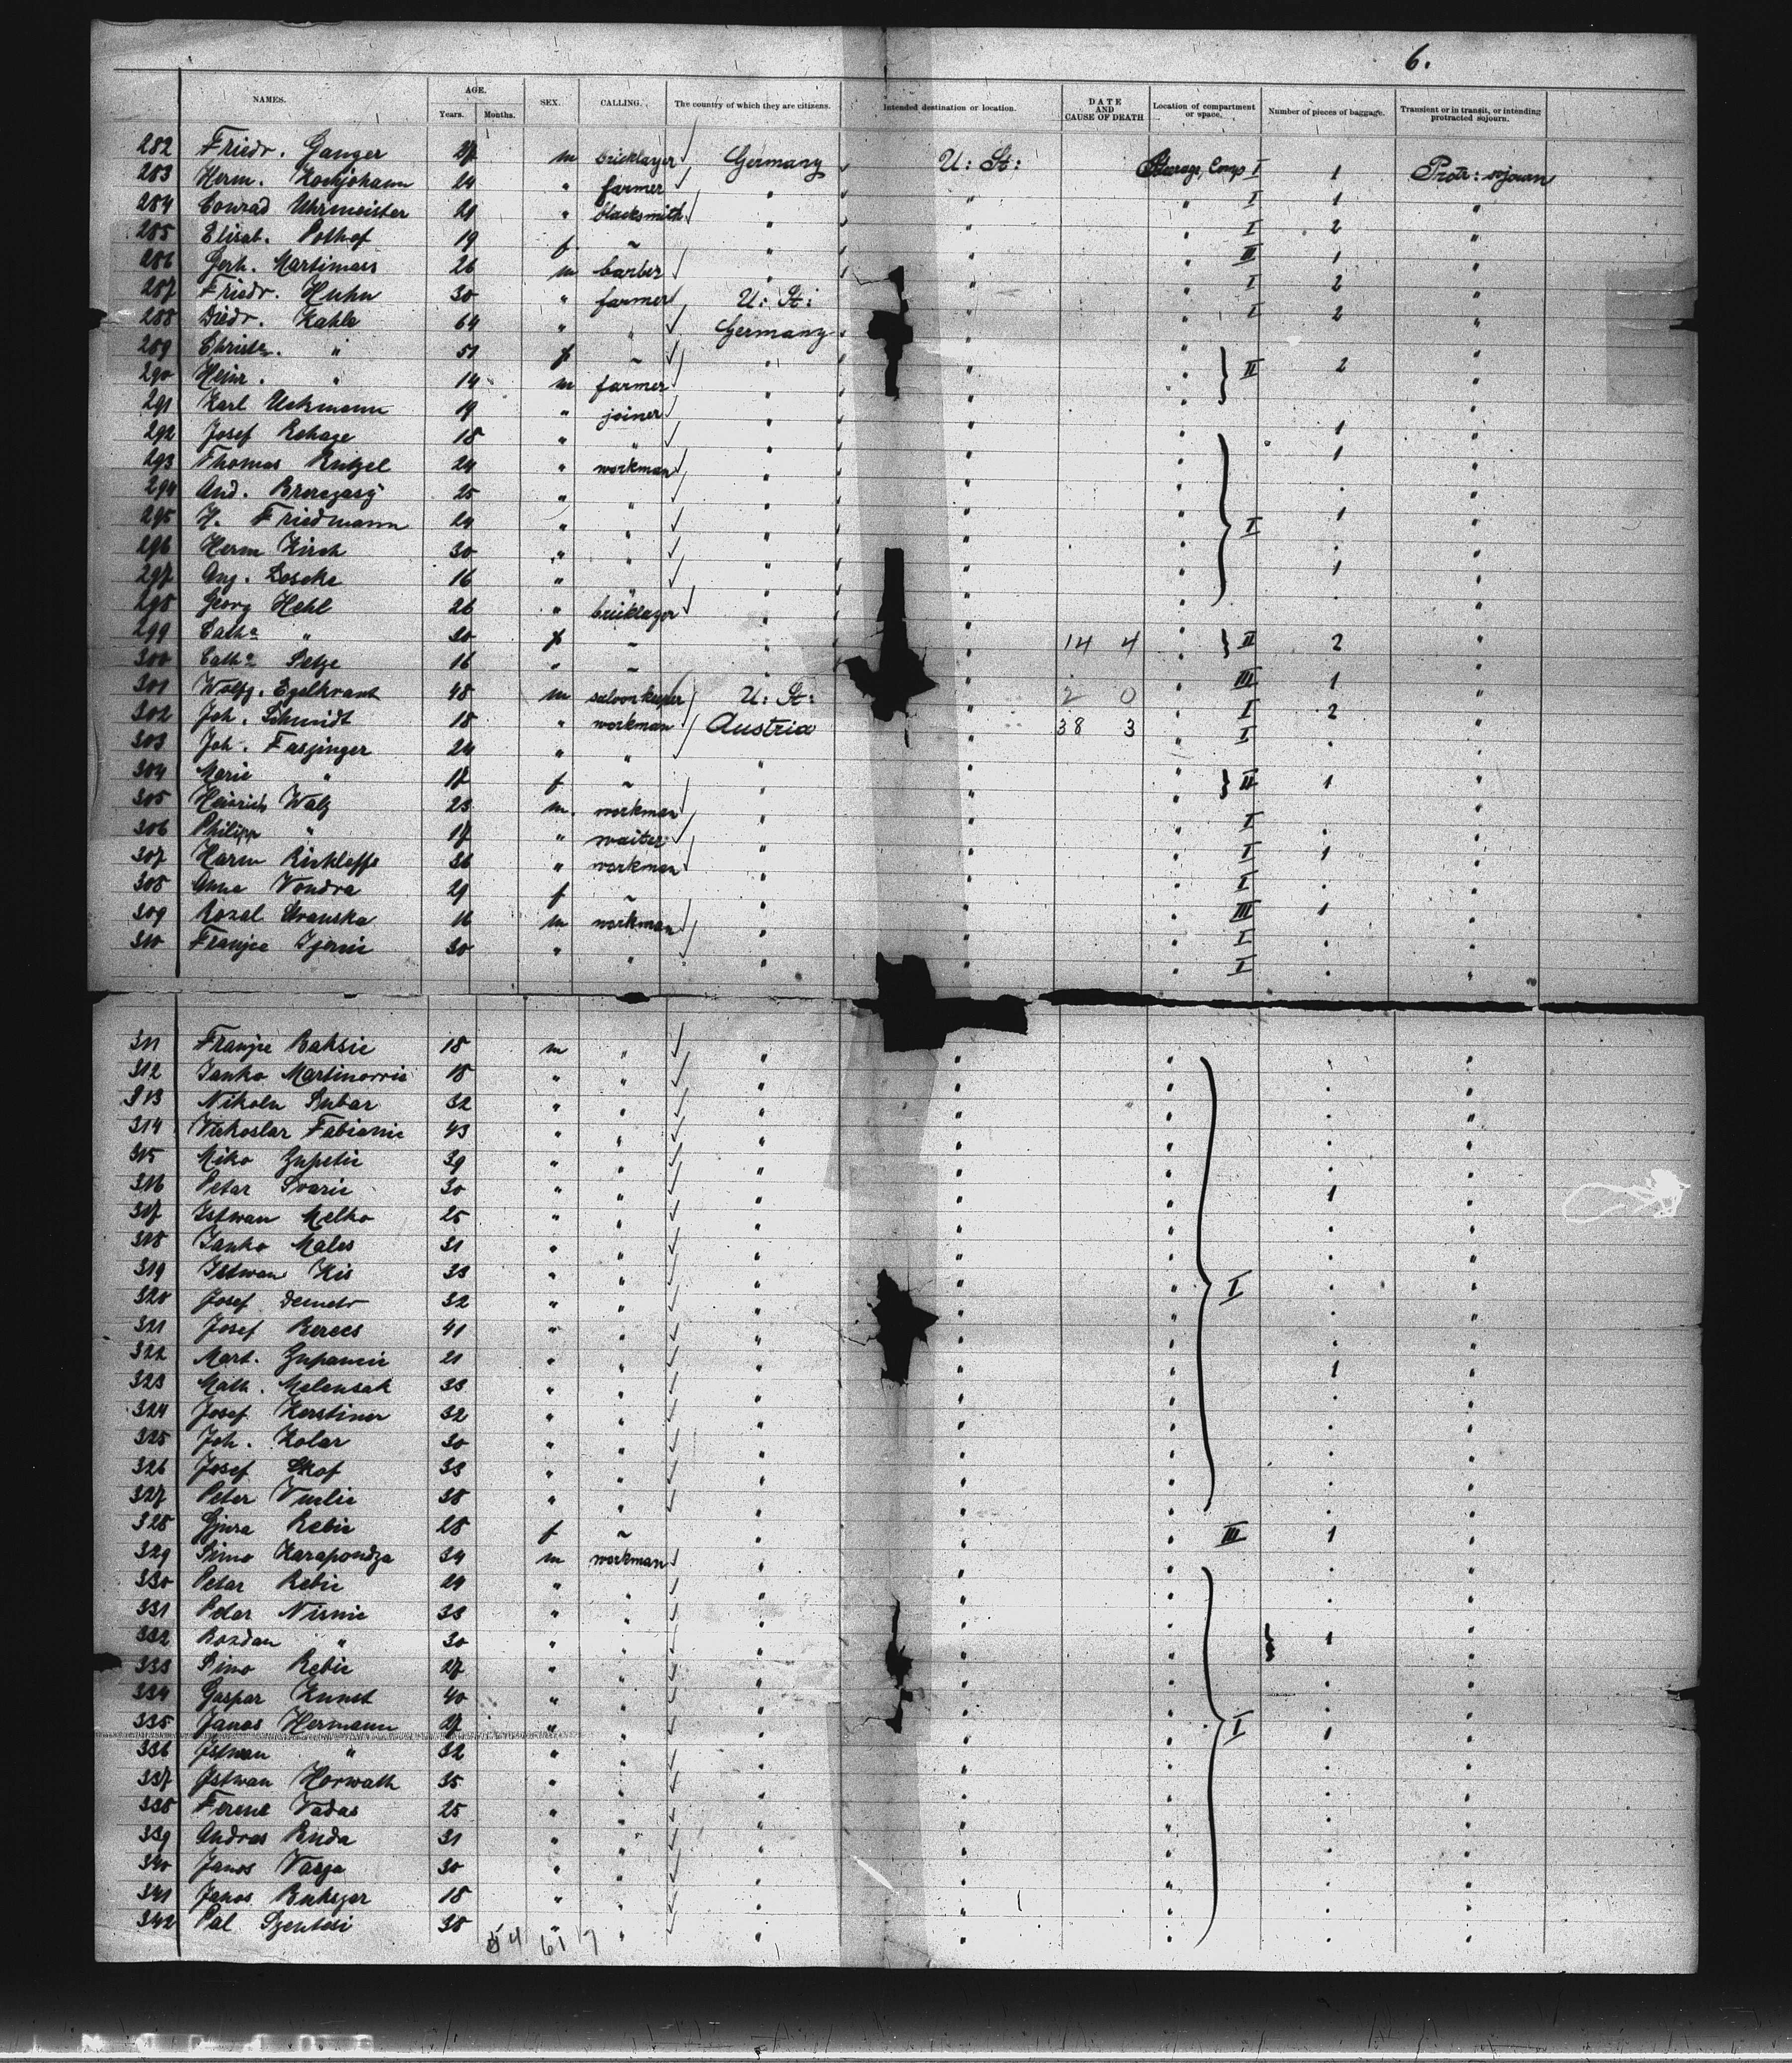 6.
NAMES. AGE. Years. Months. SEX. CALLING. The country of which they are citizens. Intended destination or location. DATE AND CAUSE OF DEATH Location of compartment or space. Number of pieces of baggage. Transient or in transit, or intending protracted sojourn.
282 Friedr. Ganger 27 m bricklayer Germany U: St: Steerage, Comp I 1 Protr: sojourn
283 Herm. Kochjohann 24 " farmer " " " I 1 "
284 Conrad Uhrmeister 29 " blacksmith " " " I 2 "
285 Elisab. Pothof 19 f ~ " " " III 1 "
286 Gerh. Martimaes 26 m barber " " " I 2 "
287 Friedr. Huhn 30 " farmer U: St: " " I 2 "
288 Diedr. Kahle 64 " " Germany " "
289 Christ. " 51 f ~ " " " II 2 "
290 Heinr. " 14 m farmer " " " "
291 Karl Uekmann 19 " joiner " " " 1 "
292 Josef Rehage 18 " " " " " 1 "
293 Thomas Rutzel 24 " workman " " " "
294 And. 25 " " " " " 1 "
295 H. Friedmann 24 " " " " " I "
296 Herm Kirch 30 " " " " " 1 "
297 Aug. Loscke 16 " " " " " "
298 Georg Hehl 26 " bricklayer " " "
299 Cath " 30 f ~ " " 14 4 " II 2 "
300 Cath Petze 16 " ~ " " " III 1 "
301 Wolfg. Egelkraut 48 m saloonkeeper U: St: " 2 0 " I 2 "
302 Joh. Schmidt 18 " workman Austria " 38 3 " I "
303 Joh. Faszinger 24 " " " " "
304 Marie " 18 f ~ " " " II 1 "
305 Heinrich Walz 23 m. workman " " " I "
306 Philipp " 17 " waiter " " " I 1 "
307 Harm 36 " workman " " " I "
308 Anna Vondra 29 f ~ " " " III 1 "
309 Rozal 16 m workman " " " I "
310 Franjce 30 " " " " " I "
311 Franjce Baksic 18 m " " " " "
312 Janko Martinovvic 18 " " " " " "
313 Nikola 32 " " " " " "
314 Vickoslav Fabianic 43 " " " " " "
315 Miko Zupetic 39 " " " " " "
316 Petar Svaric 30 " " " " " 1 "
317 Istwan Melko 25 " " " " " "
318 Janko Males 31 " " " " " "
319 Istwan Kis 33 " " " " " I "
320 Josef Demetr 32 " " " " " "
321 Josef Berecs 41 " " " " " "
322 Mart. Zupancic 21 " " " " " 1 "
323 Math. Melensak 33 " " " " " "
324 Josef Kerstiner 32 " " " " " "
325 Joh. Kolar 30 " " " " " "
326 Josef Skof 33 " " " " " "
327 Peter Vuclic 38 " " " " " "
328 Gjura Rebic 28 f ~ " " " III 1 "
329 Simo Karapondza 34 m workman " " " "
330 Petar Rebic 24 " " " " " "
331 Petar Nisnic 33 " " " " " "
332 Bozdan " 30 " " " " " 1 "
333 Simo Rebic 27 " " " " " "
334 Gaspar Kunst 40 " " " " " "
335 Janos Hermann 27 " " " " " I 1 "
336 Istwan " 32 " " " " " "
337 Istwan Horwath 35 " " " " " "
338 Ferenc Vadas 25 " " " " " "
339 Andras Buda 31 " " " " " "
340 Janos Varga 30 " " " " " "
341 Janos 18 " " " " " "
342 Pal Szentesi 38 " " " " " "
54 61 7